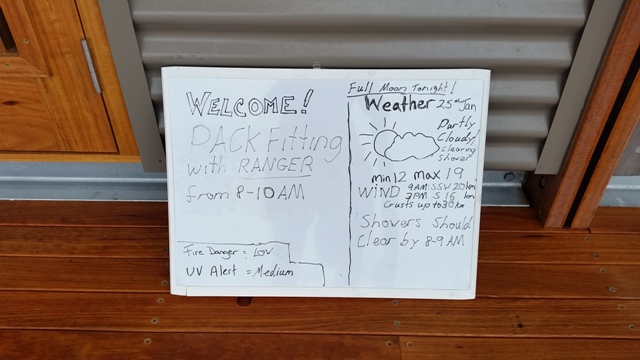 WELCOME!
PACK Fitting
with RANGER
from 8-10AM
Fire Danger = Low
UV Alert = Medium
Full Moon Tonight!
Weather 25th Jan
Partly
Cloudy!
clearing
shower
min 12 max 19
WIND 9AM SSW 20km
3PM S 16 km
Gusts up to 30km
Showers Should
Clear by 8-9AM